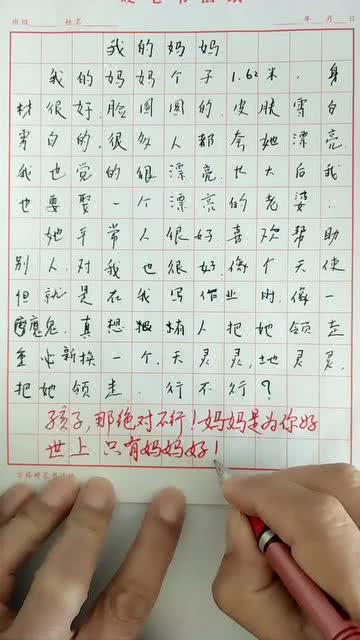 班级 姓名 年 月 日
我的妈妈
我的妈妈个子1.62米,身
材很好,脸圆圆的,皮肤雪白
雪白的,很多人都夸她漂亮.
我也觉的很漂亮.长大后我
也要娶一个漂亮的老婆.
她平常人很好喜欢帮助
别人.对我也很好.像个天使
但就是在我写作业时.像一
魔鬼.真想有人把她领走
重新换一个.天灵灵,地灵灵,
把她领走.行不行?
孩子,那绝对不行!妈妈是为你好
世上只有妈妈好!